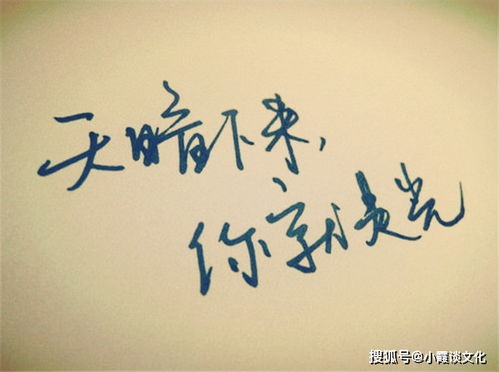 天暗下来,
你就是光
搜狐号@小霞谈文化